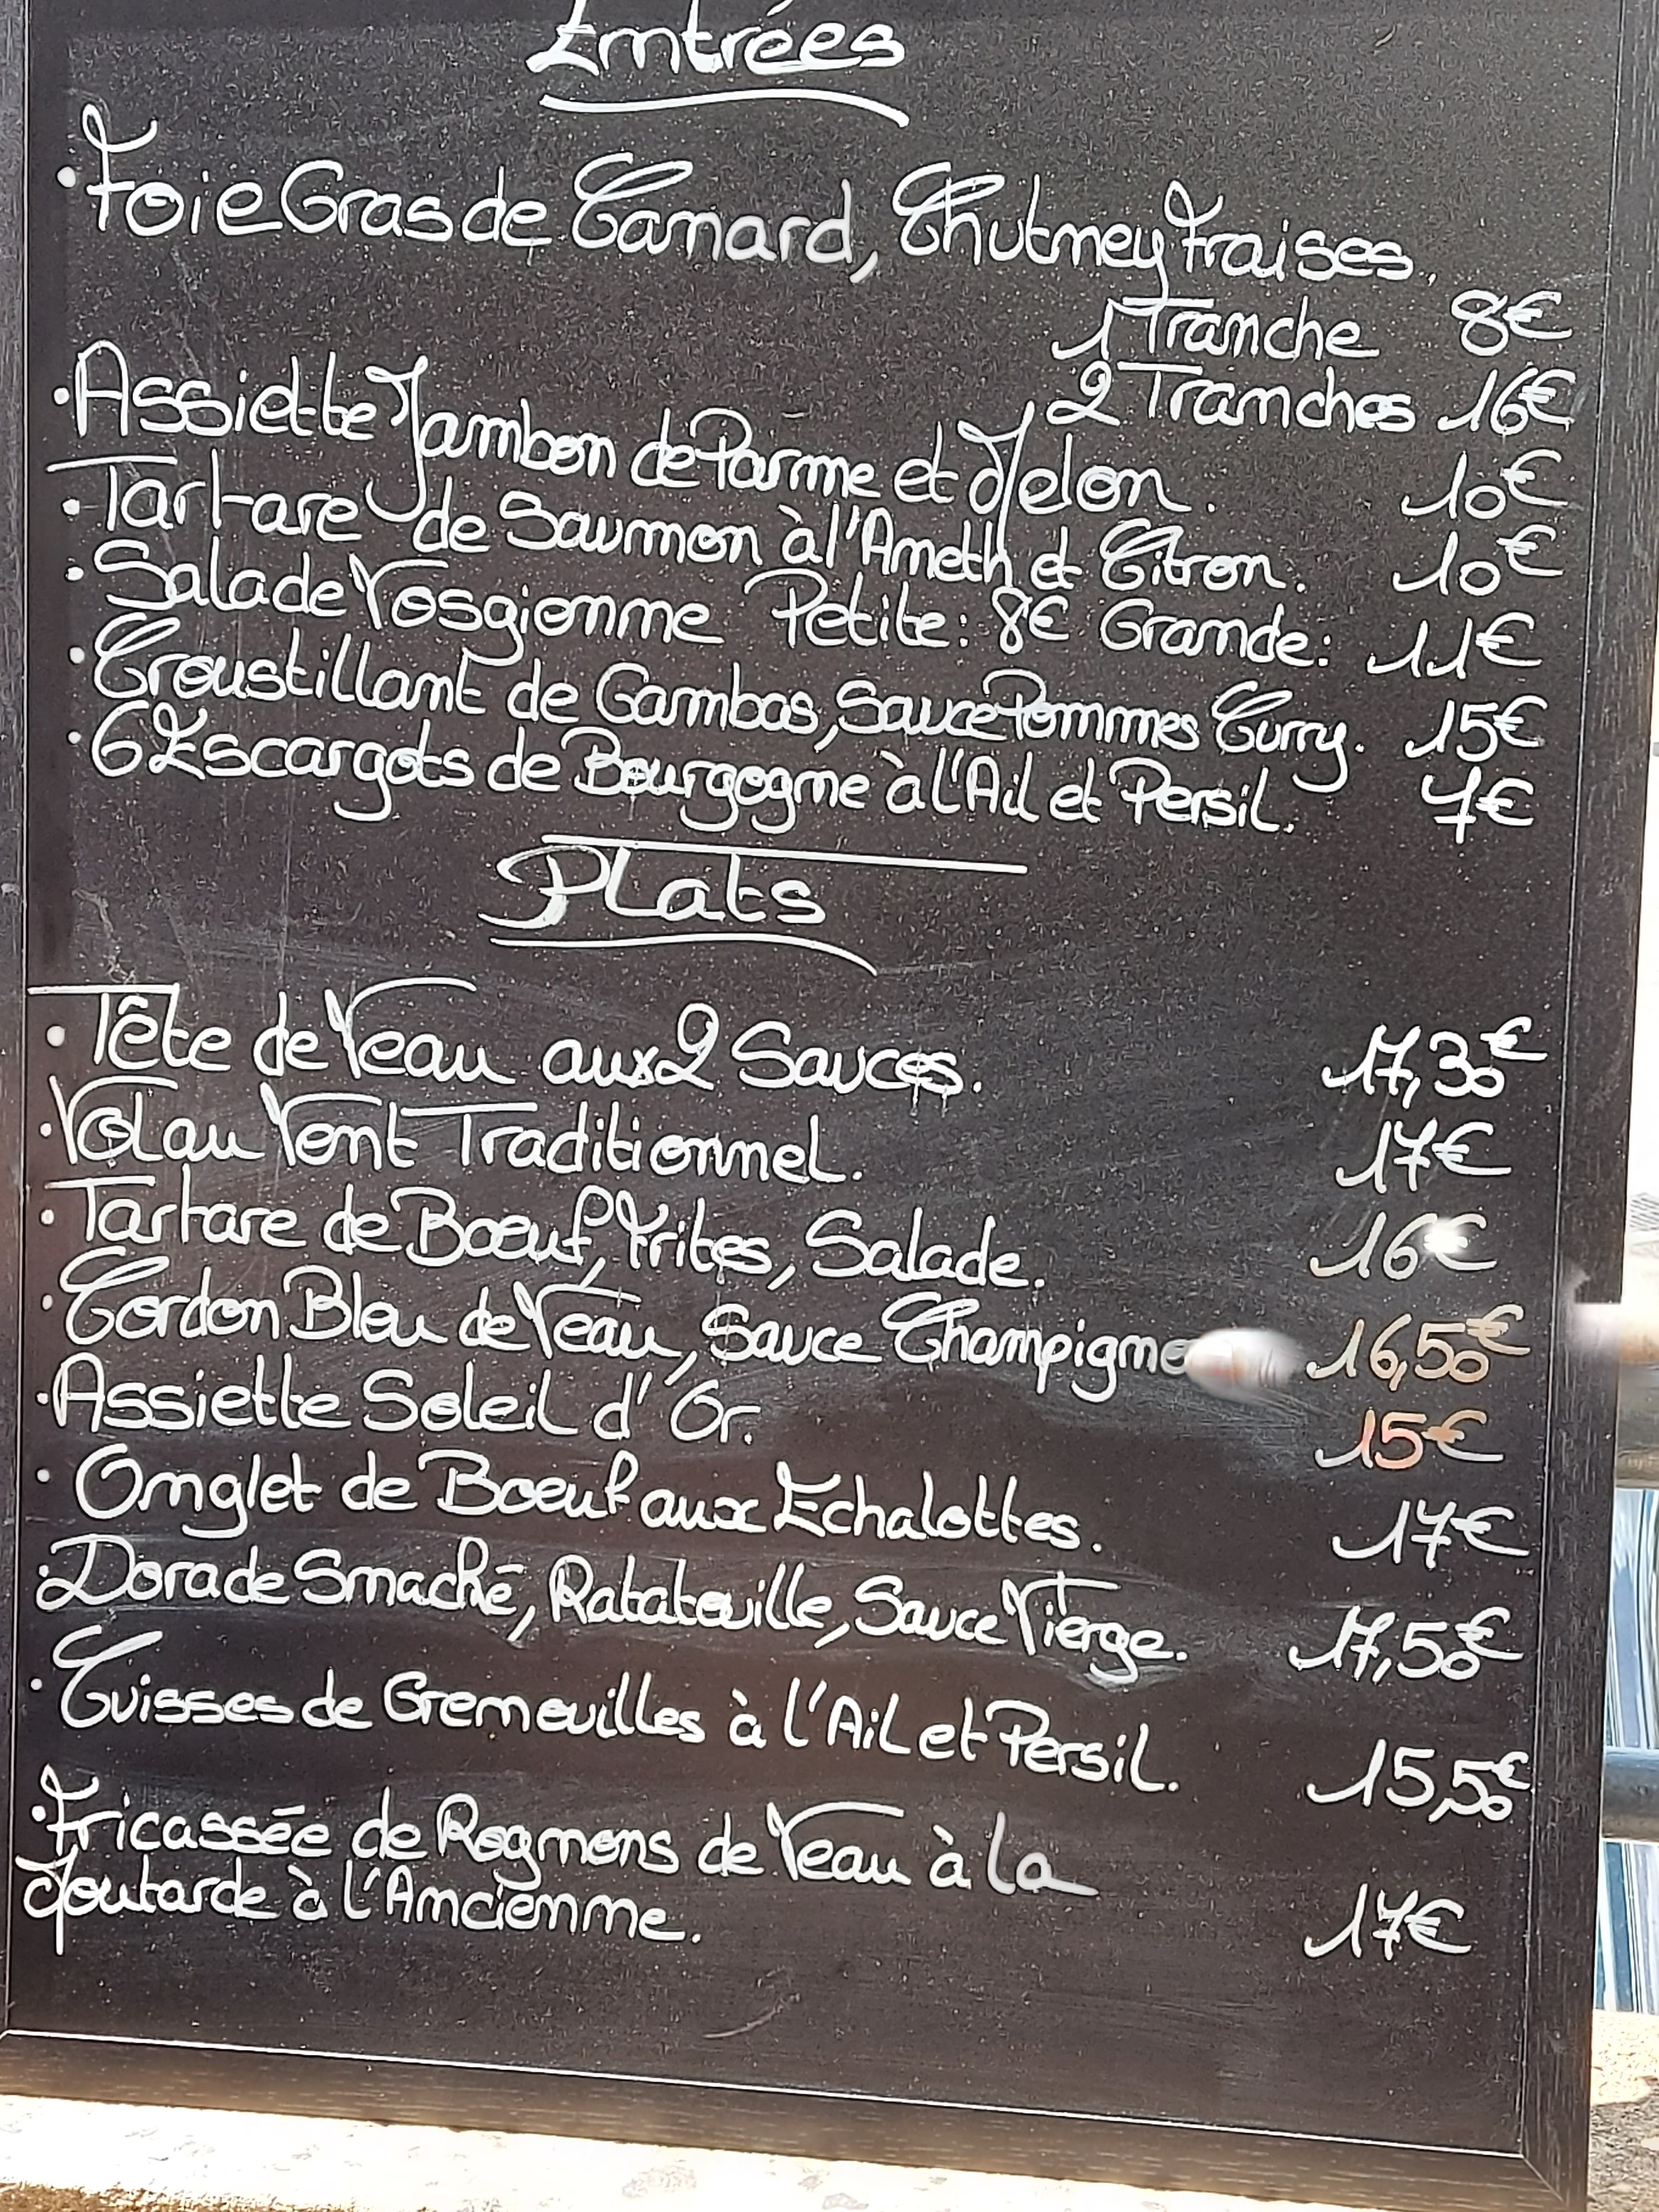 Entrées
• Foie Gras de Canard, Chutney Fraises.
1 Tranche 8€
2 Tranches 16€
• Assiette Jambon de Parme et Melon. 10€
• Tartare de Saumon à l'Aneth et Citron. 10€
• Salade Vosgienne Petite: 8€ Grande: 11€
• Croustillant de Gambas, Sauce Pommes Curry. 15€
• 6 Escargots de Bourgogne à l'Ail et Persil. 7€
Plats
• Tête de Veau aux 2 Sauces. 17,30€
• Vol au Vent Traditionnel. 17€
• Tartare de Boeuf, Frites, Salade. 16€
• Cordon Bleu de Veau, Sauce Champigno 16,50€
• Assiette Soleil d'Or. 15€
• Onglet de Boeuf aux Echalottes. 17€
• Dorade Snacké, Ratatouille, Sauce Vierge. 17,50€
• Cuisses de Grenouilles à l'Ail et Persil. 15,50€
• Fricassée de Rognons de Veau à la
Moutarde à l'Ancienne. 17€